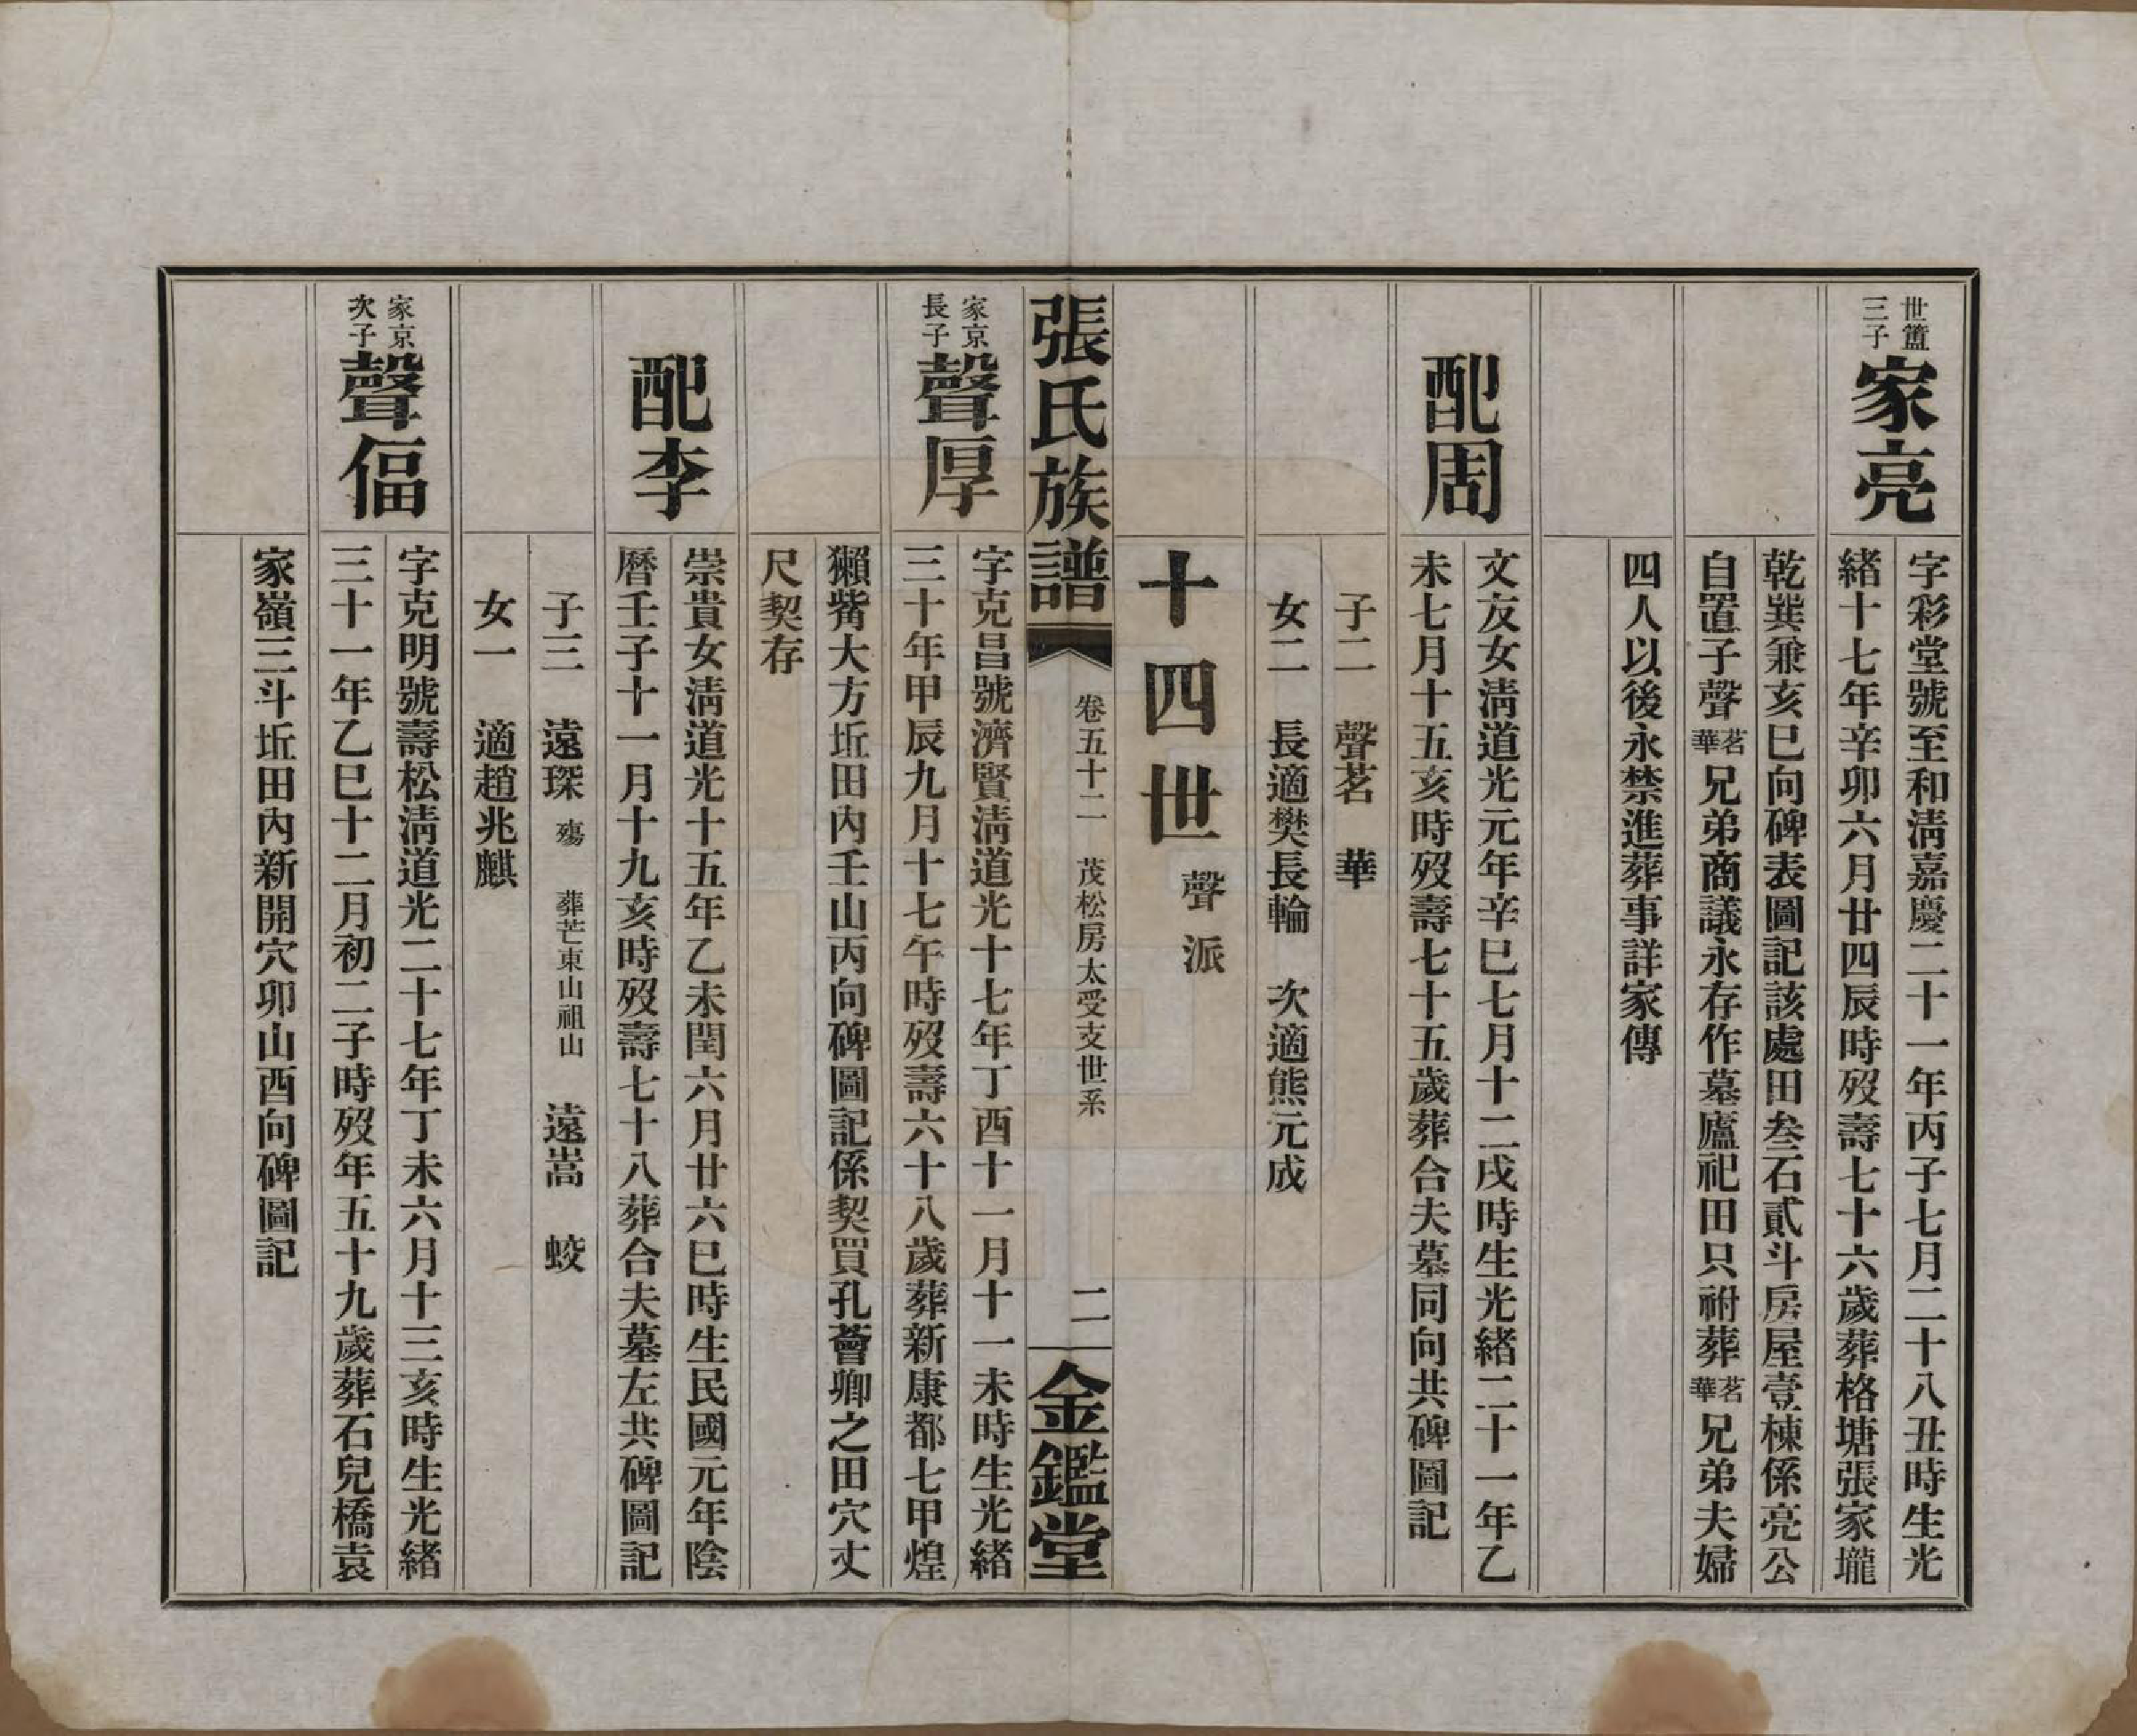 世簠
三子
家亮
字彩堂號至和淸嘉慶二十一年丙子七月二十八丑時生光
緒十七年辛卯六月廿四辰時歿壽七十六歲葬格塘張家壠
乾巽兼亥巳向碑表圖記該處田叁石貳斗房屋壹棟係亮公
自置子聲茗華兄弟商議永存作墓廬祀田只祔葬茗華兄弟夫婦
四人以後永禁進葬事詳家傳
配周
文友女淸道光元年辛巳七月十二戌時生光緒二十一年乙
未七月十五亥時歿壽七十五歲葬合夫墓同向共碑圖記
子二 聲茗 華
女二 長適樊長輪 次適熊元成
十四世 聲派
張氏族譜 卷五十二 茂松房太受支世系 二 金鑑堂
家京
長子
聲厚
字克昌號濟賢淸道光十七年丁酉十一月十一未時生光緒
三十年甲辰九月十七午時歿壽六十八歲葬新康都七甲煌
獺觜大方坵田內壬山丙向碑圖記係契買孔薈卿之田穴丈
尺契存
配李
崇貴女淸道光十五年乙未閏六月廿六巳時生民國元年陰
曆壬子十一月十九亥時歿壽七十八葬合夫墓左共碑圖記
子三 遠琛 殤 葬芒東山祖山 遠嵩 蛟
女一 適趙兆麒
家京
次子
聲偪
字克明號壽松淸道光二十七年丁未六月十三亥時生光緒
三十一年乙巳十二月初二子時歿年五十九歲葬石兒橋袁
家嶺三斗坵田內新開穴卯山酉向碑圖記